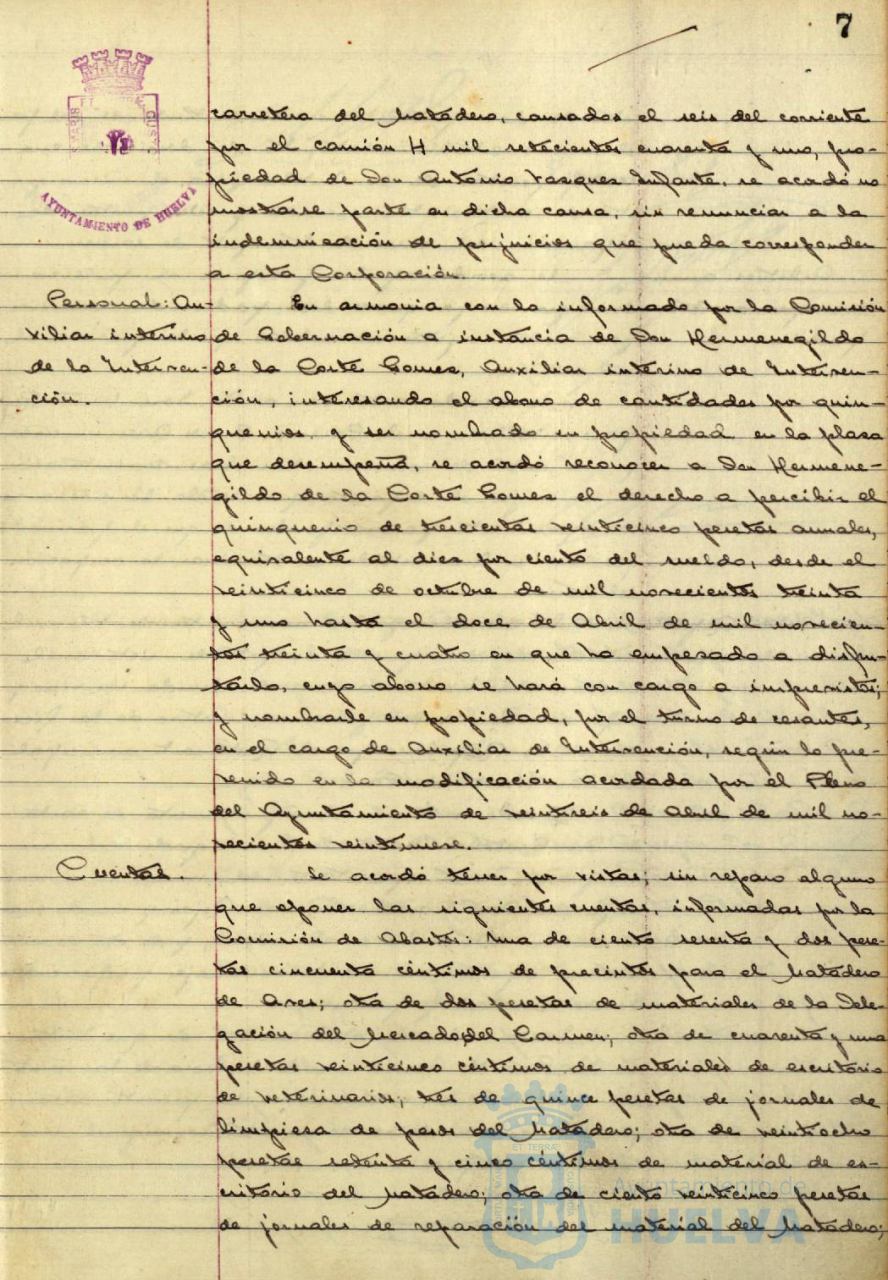 7
AYUNTAMIENTO DE HUELVA
carretera del Matadero, causados el seis del corriente
por el camión H mil setecientos cuarenta y uno, pro-
piedad de Don António Vasques Infante, se acordó no
mostrarse parte en dicha causa, sin renunciar a la
indemnisación de perjuicios que pueda corresponder
a esta Corporación.
Personal: Au-
xiliar interino
de la Interven-
ción.
En armonia con lo informado por la Comisión
de Gobernación a instancia de Don Hermenegildo
de la Corte Gomes, Auxiliar interino de Interven-
ción, interesando el abono de cantidades por quin-
quenios y ser nombrado en propiedad en la plasa
que desempeña, se acordó reconocer a Don Hermene-
gildo de la Corte Gomes el derecho a percibir el
quinquenio de trescientas veinticinco pesetas anuales,
equivalente al dies por ciento del sueldo, desde el
veinticinco de octubre de mil novecientos treinta
y uno hasta el doce de Abril de mil novecien-
tos treinta y cuatro en que ha empesado a disfru-
tarlo, cuyo abono se hará con cargo a imprevistos;
y nombrarle en propiedad, por el turno de cesantes,
en el cargo de Auxiliar de Intervención, según lo pre-
venido en la modificación acordada por el Pleno
del Ayuntamiento de veintiseis de Abril de mil no-
vecientos veintinueve.
Cuentas.
Se acordó tener por vistas, sin reparo alguno
que oponer las siguientes cuentas, informadas por la
Comisión de Abastos: Una de ciento sesenta y dos pese-
tas cincuenta céntimos de precintos para el Matadero
de Aves; otra de dos pesetas de materiales de la Dele-
gación del Mercado del Carmen; otra de cuarenta y una
pesetas veinticinco céntimos de materiales de escritorio
de veterinarios; tres de quince pesetas de jornales de
limpiesa de pesos del Matadero; otra de veintiocho
pesetas setenta y cinco céntimos de material de es-
critorio del Matadero; otra de ciento veinticinco pesetas
de jornales de reparación del material del Matadero;
Ayuntamiento de
HUELVA